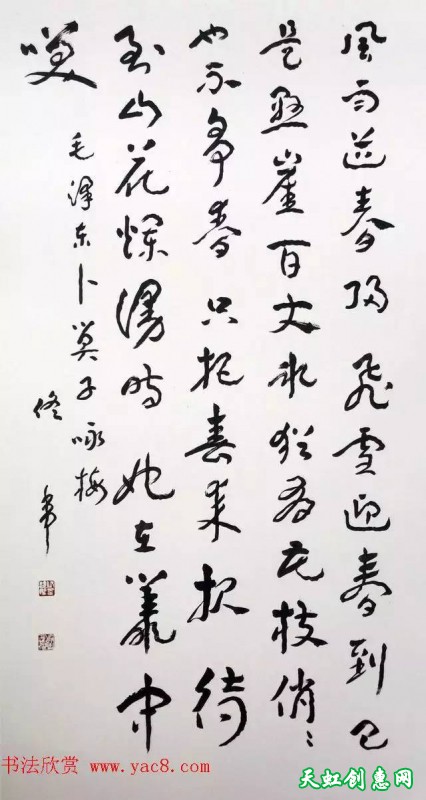 風雨送春归飛雪迎春到已
是懸崖百丈冰猶有花枝俏〻
也不爭春只把春来報待
到山花爛漫時她在叢中
笑
毛澤东卜算子咏梅
佟韦
书法欣赏 www.yac8.com
天虹创惠网